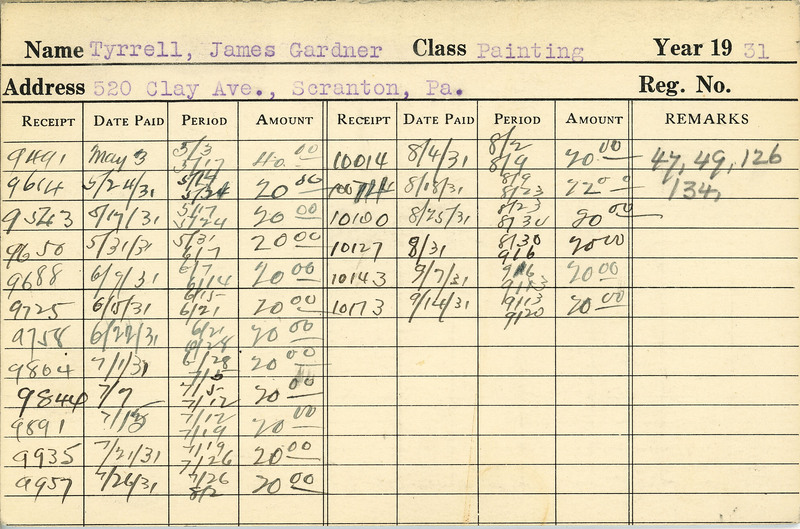 Name Tyrrell, James Gardner Class Painting Year 19 31
Address 520 Clay Ave., Scranton, Pa. Reg. No.
RECEIPT DATE PAID PERIOD AMOUNT RECEIPT DATE PAID PERIOD AMOUNT REMARKS
9491 May 3 5/3 5/17 40.00 10014 8/4/31 8/2 8/9 20.00 47, 49, 126
9614 5/24/31 20.00 8/18/31 8/9 8/23 22.00 134,
9543 5/17/31 5/17 5/24 20.00 10100 8/25/31 8/23 8/30 20.00
9650 5/31/31 5/31 6/7 20.00 10127 8/31 8/30 9/6 20.00
9688 6/9/31 6/7 6/14 20.00 10143 9/7/31 9/6 9/13 20.00
9725 6/15/31 6/15 6/21 20.00 10173 9/14/31 9/13 9/20 20.00
9758 6/22/31 6/21 6/28 20.00
9804 7/1/31 6/28 7/5 20.00
9844 7/7 7/5 7/12 20.00
9891 7/12 7/19 20.00
9935 7/21/31 7/19 7/26 20.00
9957 7/26/31 7/26 8/2 20.00